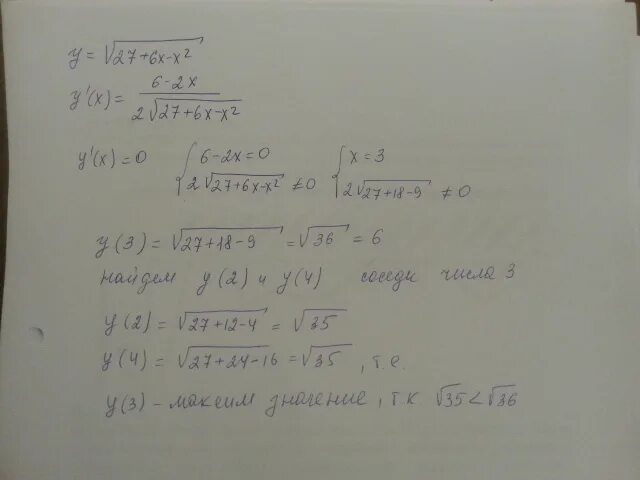 y = √(27+6x-x²)
y'(x) = (6-2x)/(2√(27+6x-x²))
y'(x)=0 { 6-2x=0 { x=3
2√(27+6x-x²) ≠0 2√(27+18-9) ≠0
y(3) = √(27+18-9) = √36 = 6
найдем y(2) и y(4) соседи числа 3
y(2) = √(27+12-4) = √35
y(4) = √(27+24-16) = √35, т.е.
y(3) - максим значение, т.к √35 < √36